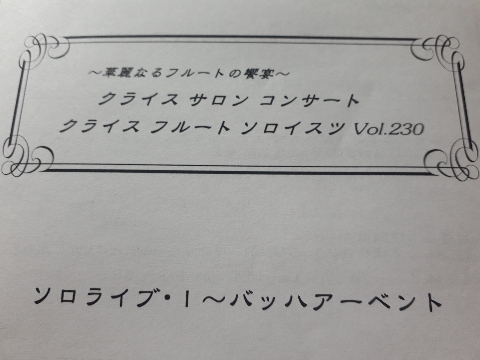 ～華麗なるフルートの饗宴～
クライス サロン コンサート
クライス フルート ソロイスツ Vol.230
ソロライブ・Ⅰ～バッハアーベント